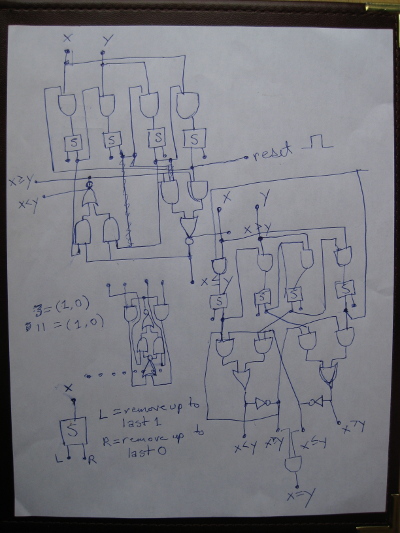 X Y
S S S S
reset
X≥Y
X<Y
X Y
X≥Y
X≤Y
S S S S
3=(1,0)
11=(1,0)
X
S
L R
L=remove up to
last 1
R=remove up to
last 0
X<Y X≥Y X≤Y X>Y
X=Y